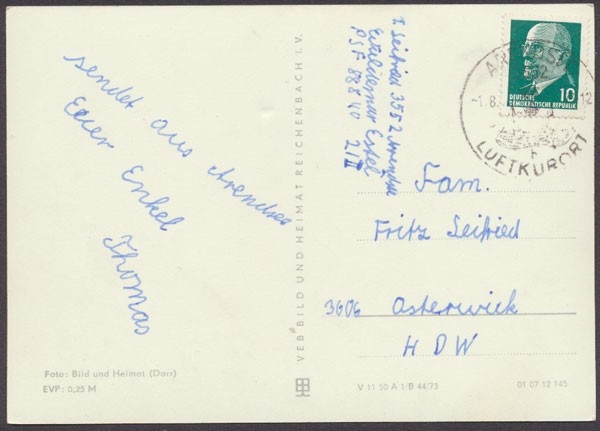 sendet aus Arendsee
Euer Enkel
Thomas
Foto: Bild und Heimat (Darr)
EVP: 0,25 M
VEB BILD UND HEIMAT REICHENBACH I. V.
T Seifried 3552 Arendsee
PSF 888 40 21 II
10
DEUTSCHE
DEMOKRATISCHE REPUBLIK
-1.8.
12
LUFTKURORT
Fam.
Fritz Seifried
3606 Osterwick
HDW
V 11 50 A 1/B 44/73
01 07 12 145